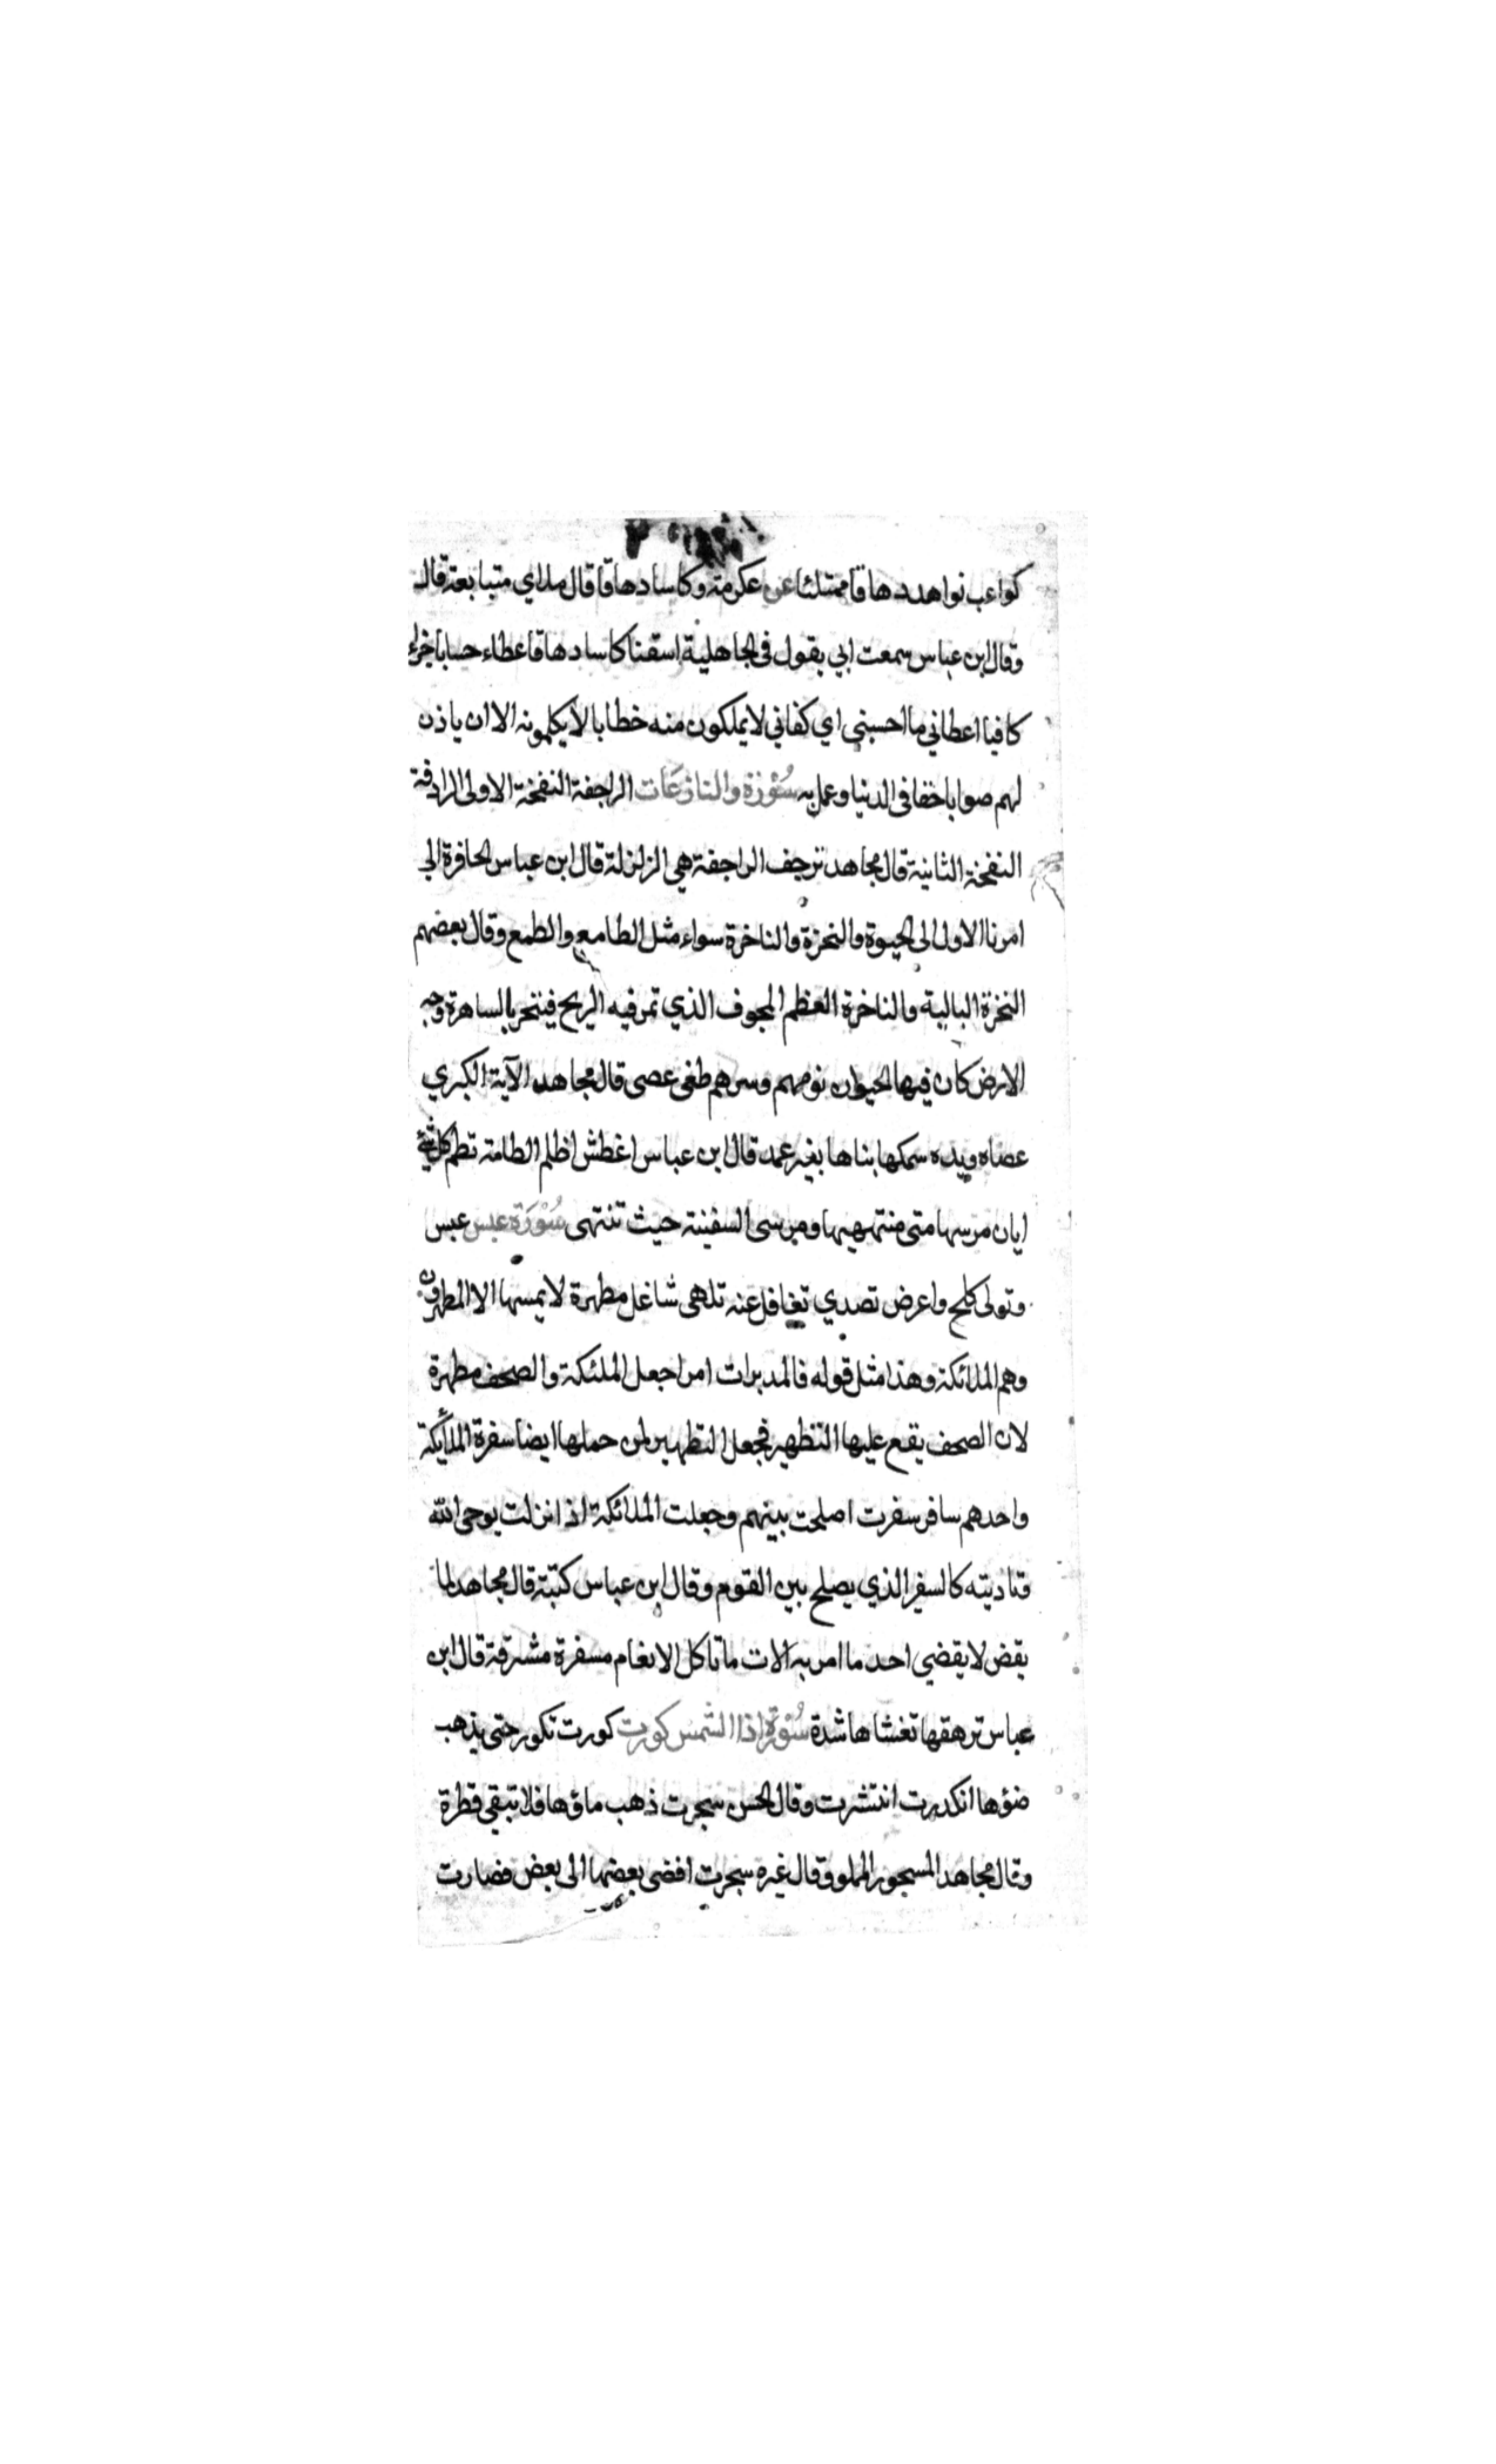 كواعب نواهد دهاقا ممتلئا عن عكرمة وكاسا دهاقا قال ملاي متتابعة قال
وقال ابن عباس سمعت ابي يقول في الجاهلية اسقنا كاسا دهاقا عطاء حسابا جزاء
كافيا اعطاني ما احسبني اي كفاني لا يملكون منه خطابا لا يكلمونه الا ان ياذن
لهم صوابا حقا في الدنيا وعمل به سُوْرَة والنازعَات الراجفة النفخة الاولى الرادفة
النفخة الثانية قال مجاهد ترجف الراجفة هي الزلزلة قال ابن عباس الحافرة الي
امرنا الاول الى الحيوة والنخرة والناخرة سواء مثل الطامع والطمع وقال بعضهم
النخرة البالية والناخرة العظم المجوف الذي تمر فيه الريح فينخر بالساهرة وجه
الارض كان فيها الحيوان نومهم وسهرهم طغى عصى قال مجاهد الآية الكبري
عصاه ويده سمكها بناها بغير عمد قال ابن عباس اغطش اظلم الطامة تطم كل شيء
ايان مرسها متى منتهيها ومرسى السفينة حيث تنتهى سُوْرَة عبس عبس
وتولى كلح واعرض تصدي تغافل عنه تلهى شاغل مطهرة لا يمسها الا المطهرون
وهم الملائكة وهذا مثل قوله فالمدبرات امرا جعل الملئكة والصحف مطهرة
لان الصحف يقع عليها التطهير فجعل التطهير لمن حملها ايضا سفرة الملائكة
واحدهم سافر سفرت اصلحت بينهم وجعلت الملائكة اذا نزلت بوحى الله
وتاديته كالسفير الذي يصلح بين القوم وقال ابن عباس كتبة قال مجاهد لما
يقض لا يقضي احد ما امر به الات ما تاكل الانعام مسفرة مشرقة قال ابن
عباس ترهقها تغشاها شدة سُوْرَة اذا الشمس كورت كورت تكور حتى يذهب
ضؤها انكدرت انتثرت وقال الحسن سجرت ذهب ماؤها فلا تبقي قطرة
وقال مجاهد المسجور المملو وقال غيره سجرت افضى بعضها الى بعض فصارت